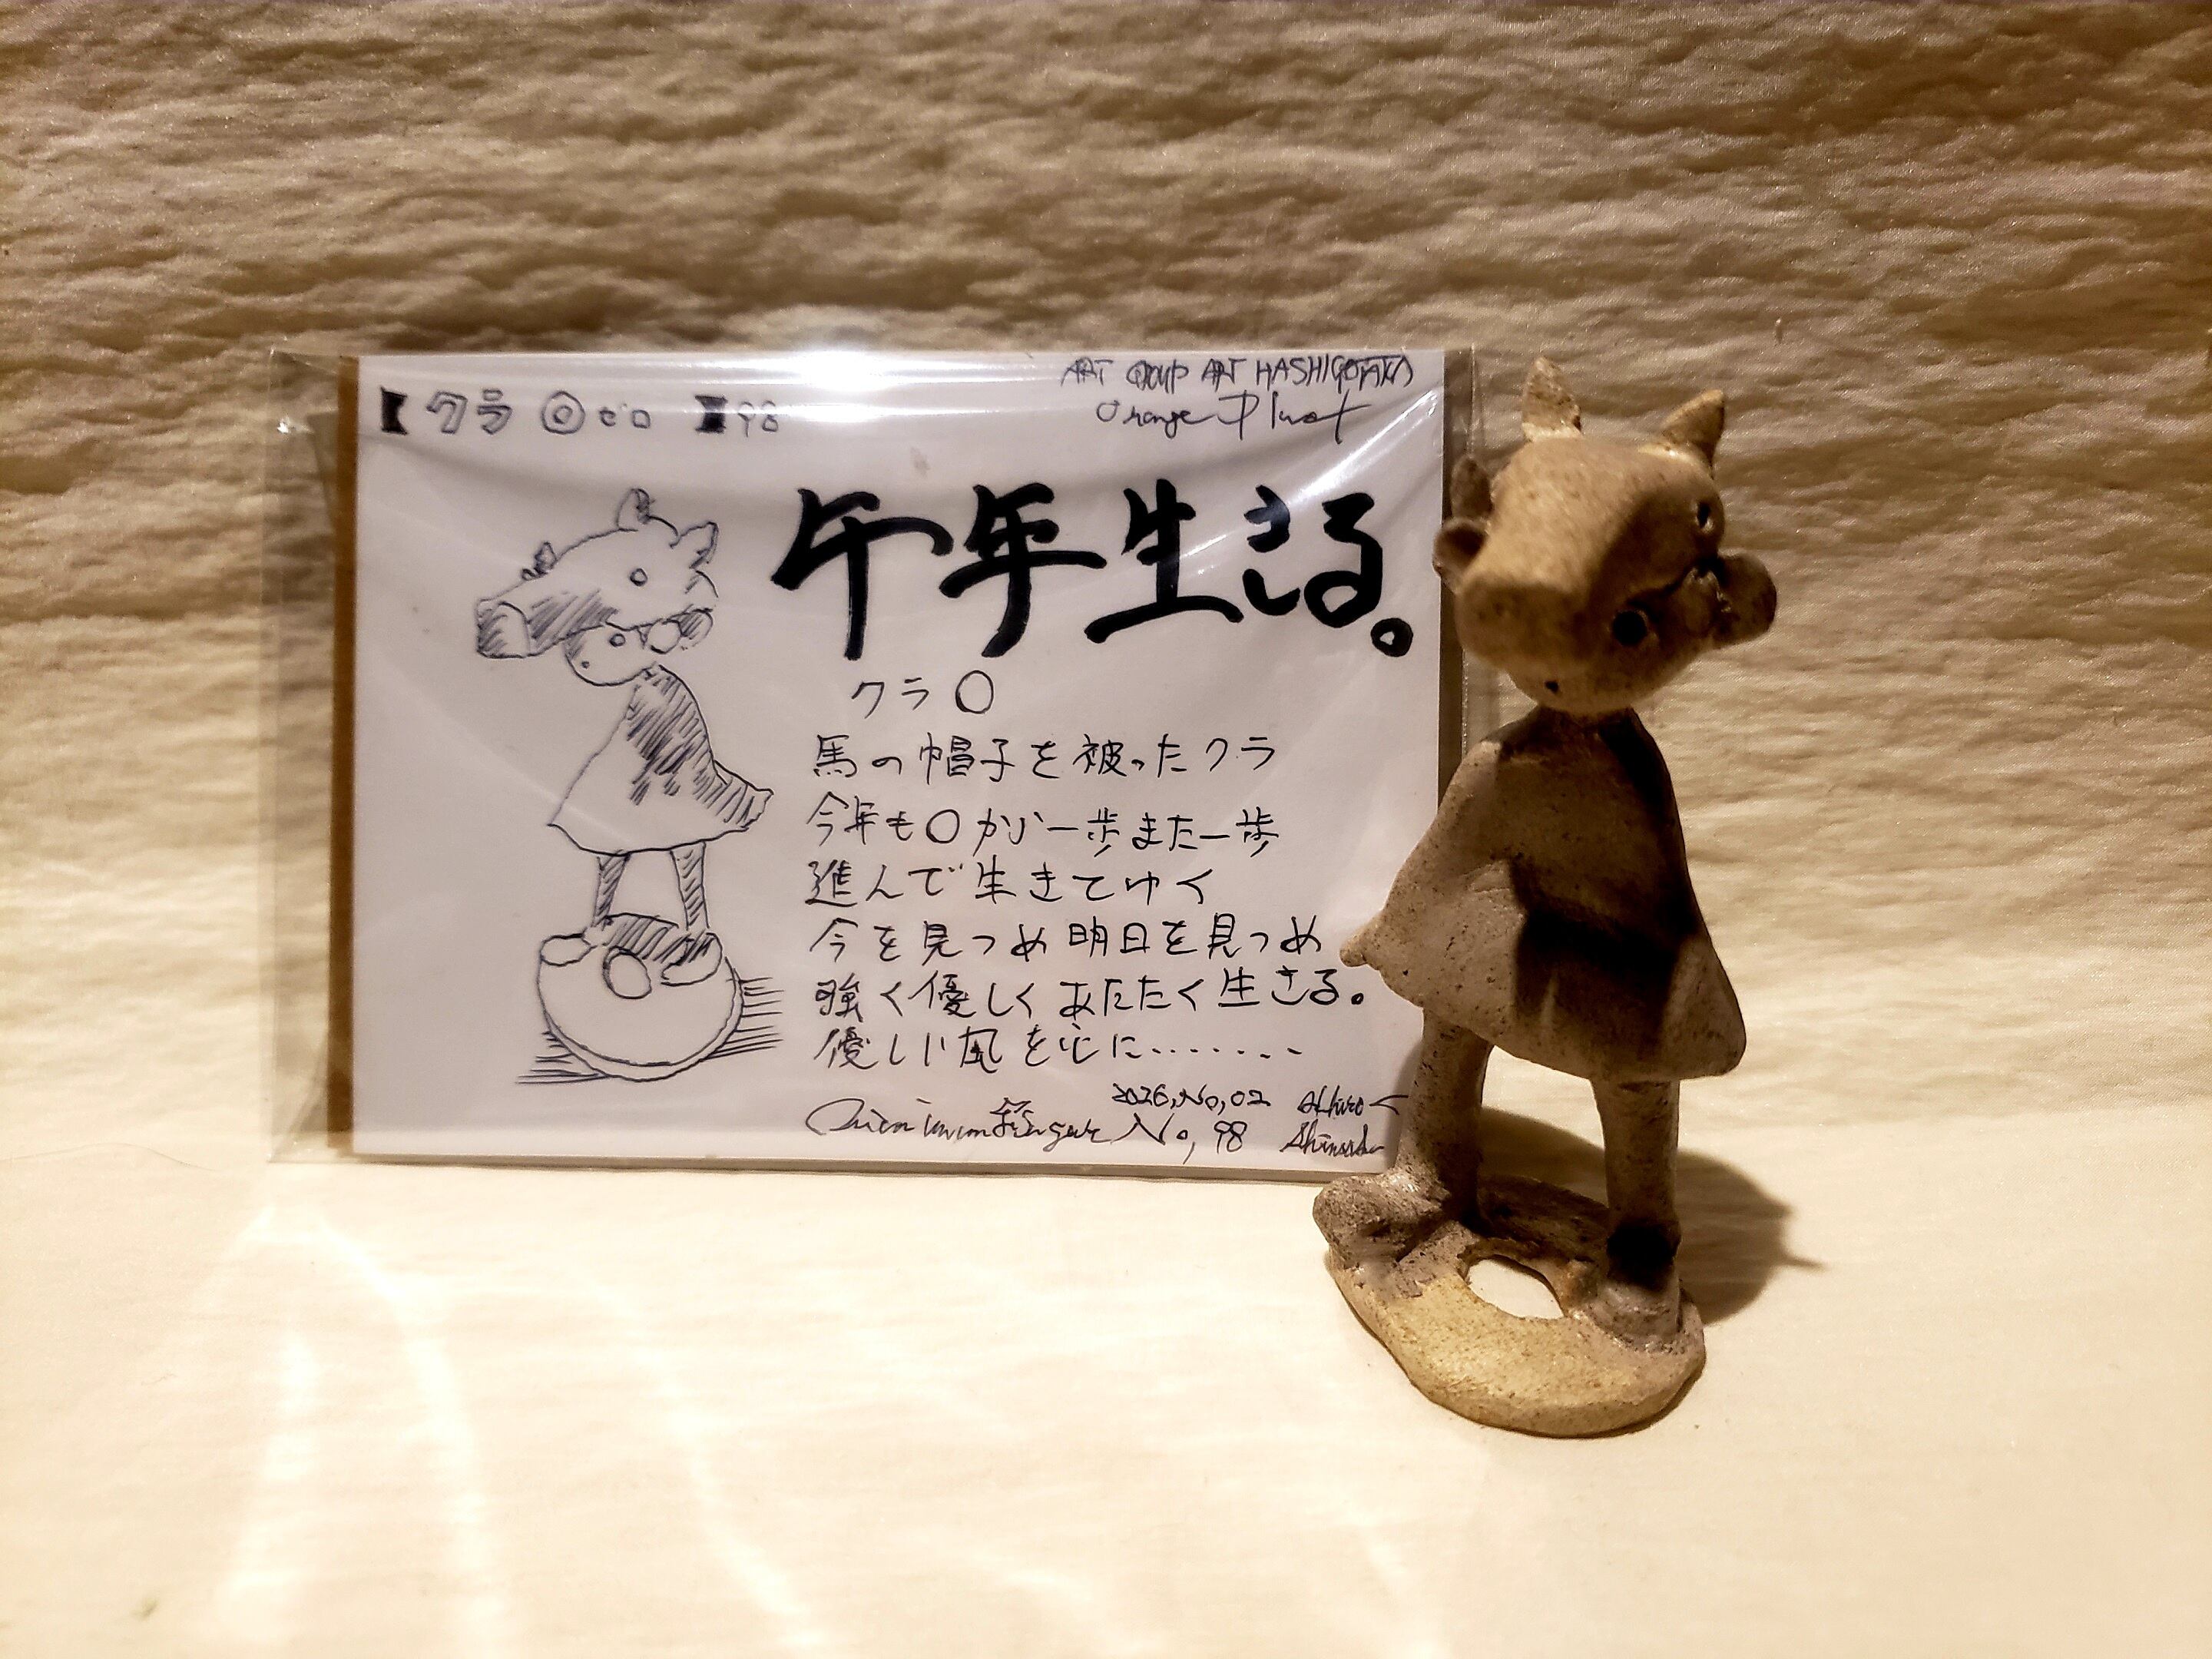 ART GROUP ART HASHIGOTAKA
【クラ◎ゼロ】98
Orange Plust
午年生きる。
クラ〇
馬の帽子を被ったクラ
今年も〇から一歩また一歩
進んで生きてゆく
今を見つめ明日を見つめ
強く優しくあたたく生きる。
優しい風を心に........
2026,No,02
No,98